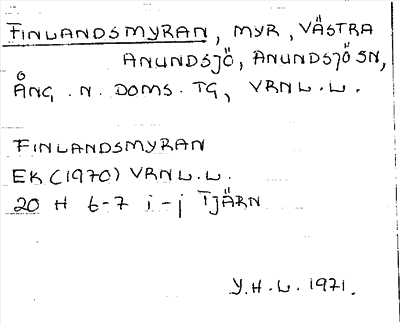 FINLANDSMYRAN, MYR, VÄSTRA
ANUNDSJÖ, ANUNDSJÖ SN,
ÅNG. N. DOMS. TG, VRNL.L.
FINLANDSMYRAN
EK (1970) VRNL.L.
20 H 6-7 i-j TJÄRN
Y.H.L. 1971.